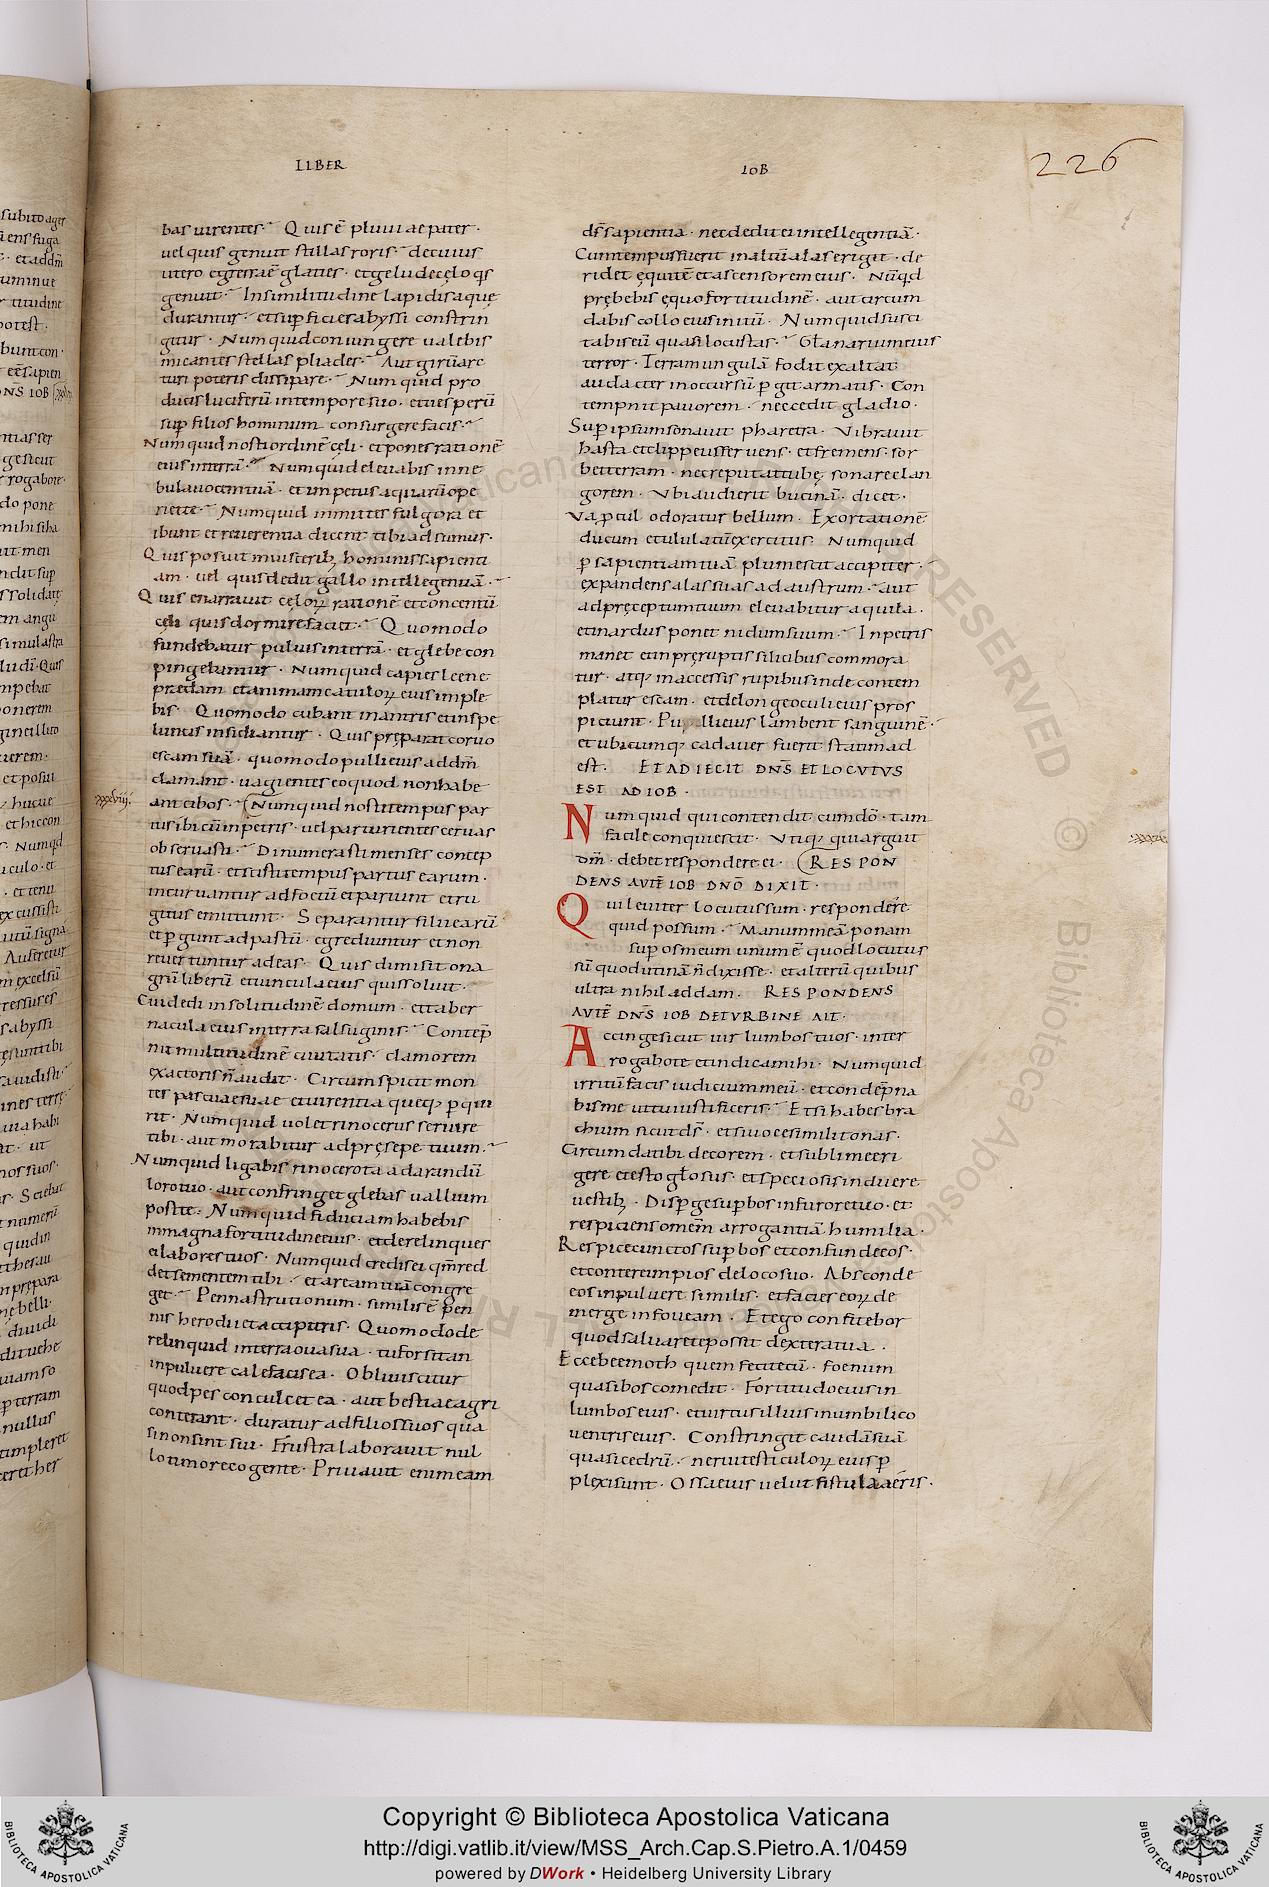 LIBER
IOB
226
bas uirentes· Quis ē pluuiae pater·
uel quis genuit stillas roris· decuius
utero egressa ē glaties· et gelu de cęlo q̄s
genuit· In similitudinē lapidis aquę
durantur· et sup̄ficies abyssi constrin
gitur· Numquid coniungere ualebis
micantes stellas pliades· Aut girū arc
turi poteris dissipare· Numquid pro
ducis luciferū in tempore suo· et uesperū
sup̄ filios hominum consurgere facis·
Numquid nosti ordinē cęli· et pones rationē
eius in terra· Numquid eleuabis in ne
bula uocem tuā· et impetus aquarū ope
riet te· Numquid inmittes fulgora et
ibunt et reuerentia dicent tibi adsumus·
Quis posuit in uisterib; hominis sapienti
am· uel quis dedit gallo intellegentiā·
Quis enarrauit cęloꝝ rationē et concentū
cęli quis dormire faciet· Quomodo
fundebatur puluis in terrā· et glebe con
pingebantur· Numquid capies leene
praedam et animam catuloꝝ eius imple
bis· Quomodo cubant in antris et in spe
luncis insidiantur· Quis pręparat coruo
escam suā· quomodo pulli eius ad dm̄
clamant· uagientes eo quod non habe
xxxviiij·
ant cibos· Numquid nosti tempus par
tus ibicū in petris· uel parturientes ceruas
obseruasti· Dinumerasti menses concep
tus earū· et scisti tempus partus earum·
incuruantur ad foetū et pariunt et ru
gitus emittunt· Separantur filii earū
et ꝑgunt ad pastū· egrediuntur et non
reuertuntur ad eas· Quis dimisit ona
grū liberū et uincula eius quis soluit·
Cui dedi in solitudinē domum· et taber
nacula eius in terra salsuginis· Contep̄
nit multitudinē ciuitatis· clamorem
exactoris n̄ audit· Circumspicit mon
tes pascuae suae et uirentia queq; ꝑqui
rit· Numquid uolet rinocerus seruire
tibi· aut morabitur ad pręsepe tuum·
Numquid ligabis rinocerota ad arandū
loro tuo· aut confringet glebas uallium
post te· Numquid fiduciam habebis
in magna fortitudine eius· et derelinques
ei labores tuos· Numquid credis ei qm̄ red
det sementem tibi· et aream tuā congre
get· Penna strutionum· similis ē pen
nis herodii et accipitris· Quomodo de
relinquid in terra oua sua· tu forsitan
in puluere calefacis ea· Obliuiscitur
quod pes conculcet ea· aut bestiae agri
conterant· duratur ad filios suos qua
si non sint sui· Frustra laborauit nul
lo timore cogente· Priuauit enim eam
ds̄ sapientia· nec dedit ei intellegentiā·
Cum tempus fuerit in altū alas erigit· de
ridet equitē et ascensorem eius· Nūq̄d
prębebis equo fortitudinē· aut circum
dabis collo eius initū· Numquid susci
tabis eū quasi locustas· Gl̄a narium eius
terror· Terram ungulā fodit exaltat
audacter in occursū ꝑgit armatis· Con
tempnit pauorem· nec cedit gladio·
Sup̄ ipsum sonauit pharetra· Vibrauit
hasta et clippeus feruens· et fremens· sor
bet terram· nec reputat tubę sonare clan
gorem· Vbi audierit bucinā· dicet·
Va ꝓcul odoratur bellum· Exortationē
ducum et ululatū exercitus· Numquid
ꝑ sapientiam tuā plumescit accipiter·
expandens alas suas ad austrum· aut
ad pręceptum tuum eleuabitur aquila·
et in ardus ponet nidum suum· In petris
manet et in pręruptis silicibus commora
tur· atq; inaccessis rupibus inde contem
platur escam· et de longe oculi eius pros
piciunt· Pulli eius lambent sanguinē·
et ubicumq; cadauer fuerit statim ad
est· ET ADIECIT DN̄S ET LOCVTVS
EST AD IOB·
Numquid qui contendit cum dō· tam
facile conquiescit· Vtiq; qui arguit
dm̄· debet respondere ei· RESPON
DENS AVTĒ IOB DN̄O DIXIT·
Qui leuiter locutus sum· respondére
quid possum· Manum meā ponam
sup̄ os meum unum ē quod locutus
sū quod utinā n̄ dixisse· et alterū quibus
ultra nihil addam· RESPONDENS
AVTĒ DN̄S IOB DE TVRBINE AIT·
Accinge sicut uir lumbos tuos· inter
rogabo te et indica mihi· Numquid
irritū facis iudicium meū· et condēpna
bis me ut tu iustificeris· Et si habes bra
chium sicut ds̄· et si uoce simili tonas·
Circumda tibi decorem· et sublime eri
gere et esto gl̄osus· et speciosis induere
uestib;· Disp̄ge sup̄bos in furore tuo· et
respiciens omēm arrogantiā humilia·
Respice cunctos sup̄bos et confunde eos·
et contere impios de loco suo· Absconde
eos in puluere similis· et facies eoꝝ de
merge in foueam· Et ego confitebor
quod saluare te possit dextera tua·
Ecce beemoth quem feci tecū· foenum
quasi bos comedit· Fortitudo eius in
lumbos eius· et uirtus illius in umbilico
uentris eius· Constringit caudā suā
quasi cedrū· nerui testiculoꝝ eius ꝑ
plexi sunt· Ossa eius uelut fistula aéris·
Copyright © Biblioteca Apostolica Vaticana
http://digi.vatlib.it/view/MSS_Arch.Cap.S.Pietro.A.1/0459
powered by DWork • Heidelberg University Library
BIBLIOTECA APOSTOLICA VATICANA
BIBLIOTECA APOSTOLICA VATICANA